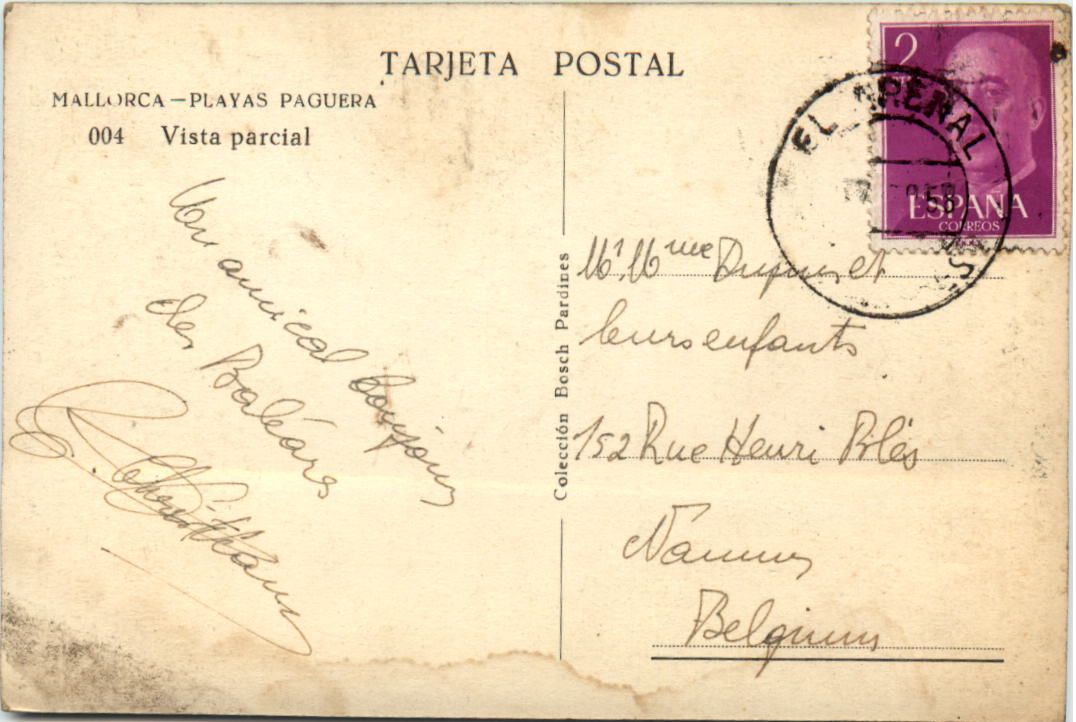 TARJETA POSTAL
MALLORCA – PLAYAS PAGUERA
004 Vista parcial
Un amical bonjour
des Baléares
Colección Bosch Pardines
2
ESPAÑA
CORREOS
EL ARENAL
Mr. Mme Dupuis et
leurs enfants
152 Rue Henri Blès
Namur
Belgium